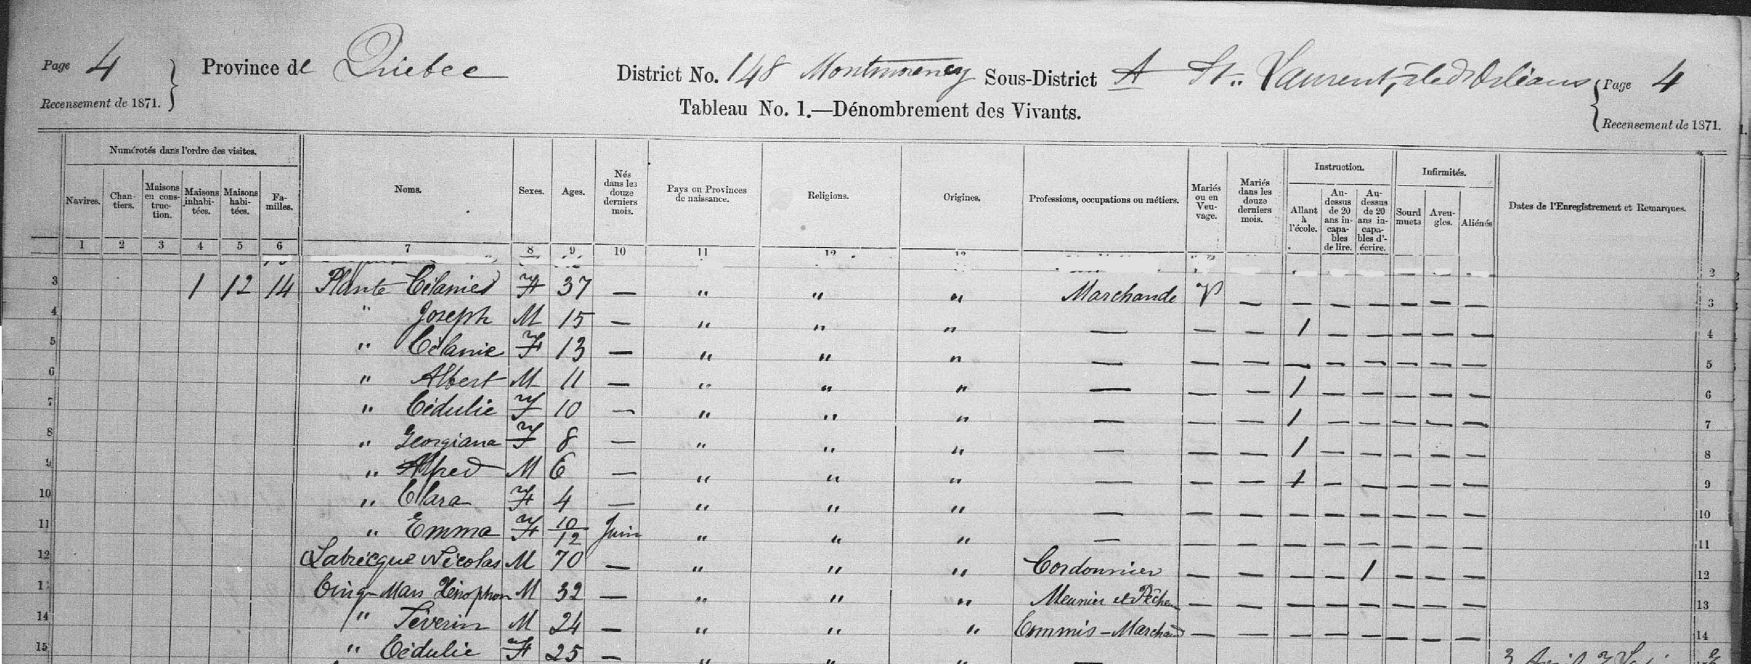 Page 4 Province de Quebec District No. 148 Montmorency Sous-District A St. Laurent, Ile d'Orléans Page 4
Recensement de 1871. Tableau No. 1.—Dénombrement des Vivants. Recensement de 1871.
Numérotés dans l'ordre des visites. Instruction. Infirmités.
Navires. Chan-tiers. Maisons en cons-truc-tion. Maisons inhabi-tées. Maisons habi-tées. Fa-milles. Noms. Sexes. Ages. Nés dans les douze derniers mois. Pays ou Provinces de naissance. Religions. Origines. Professions, occupations ou métiers. Mariés ou en Veu-vage. Mariés dans les douze derniers mois. Allant à l'école. Au-dessus de 20 ans in-capa-bles de lire. Au-dessus de 20 ans in-capa-bles d'écrire. Sourd muets Aveu-gles. Aliénés Dates de l'Enregistrement et Remarques.
1 2 3 4 5 6 7 8 9 10 11 12 13
2
3 1 12 14 Plante Célanied F 37 — " " " Marchande V — — — — — — — 3
4 " Joseph M 15 — " " " — — — 1 — — — — — 4
5 " Célanie F 13 — " " " — — — — — — — — — 5
6 " Albert M 11 — " " " — — — 1 — — — — — 6
7 " Cédulie F 10 — " " " — — — 1 — — — — — 7
8 " Georgiana F 8 — " " " — — — 1 — — — — — 8
9 " Alfred M 6 — " " " — — — 1 — — — — — 9
10 " Clara F 4 — " " " — — — — — — — — — 10
11 " Emma F 10/12 Juin " " " — — — — — — — — — 11
12 Labrecque Nicolas M 70 — " " " Cordonnier — — — — 1 — — — 12
13 Cinq-Mars Xénophon M 32 — " " " Meunier et Pêche — — — — — — — — 13
14 " Séverin M 24 — " " " Commis-Marchand — — — — — — — — 14
15 " Cédulie F 25 — " " " —